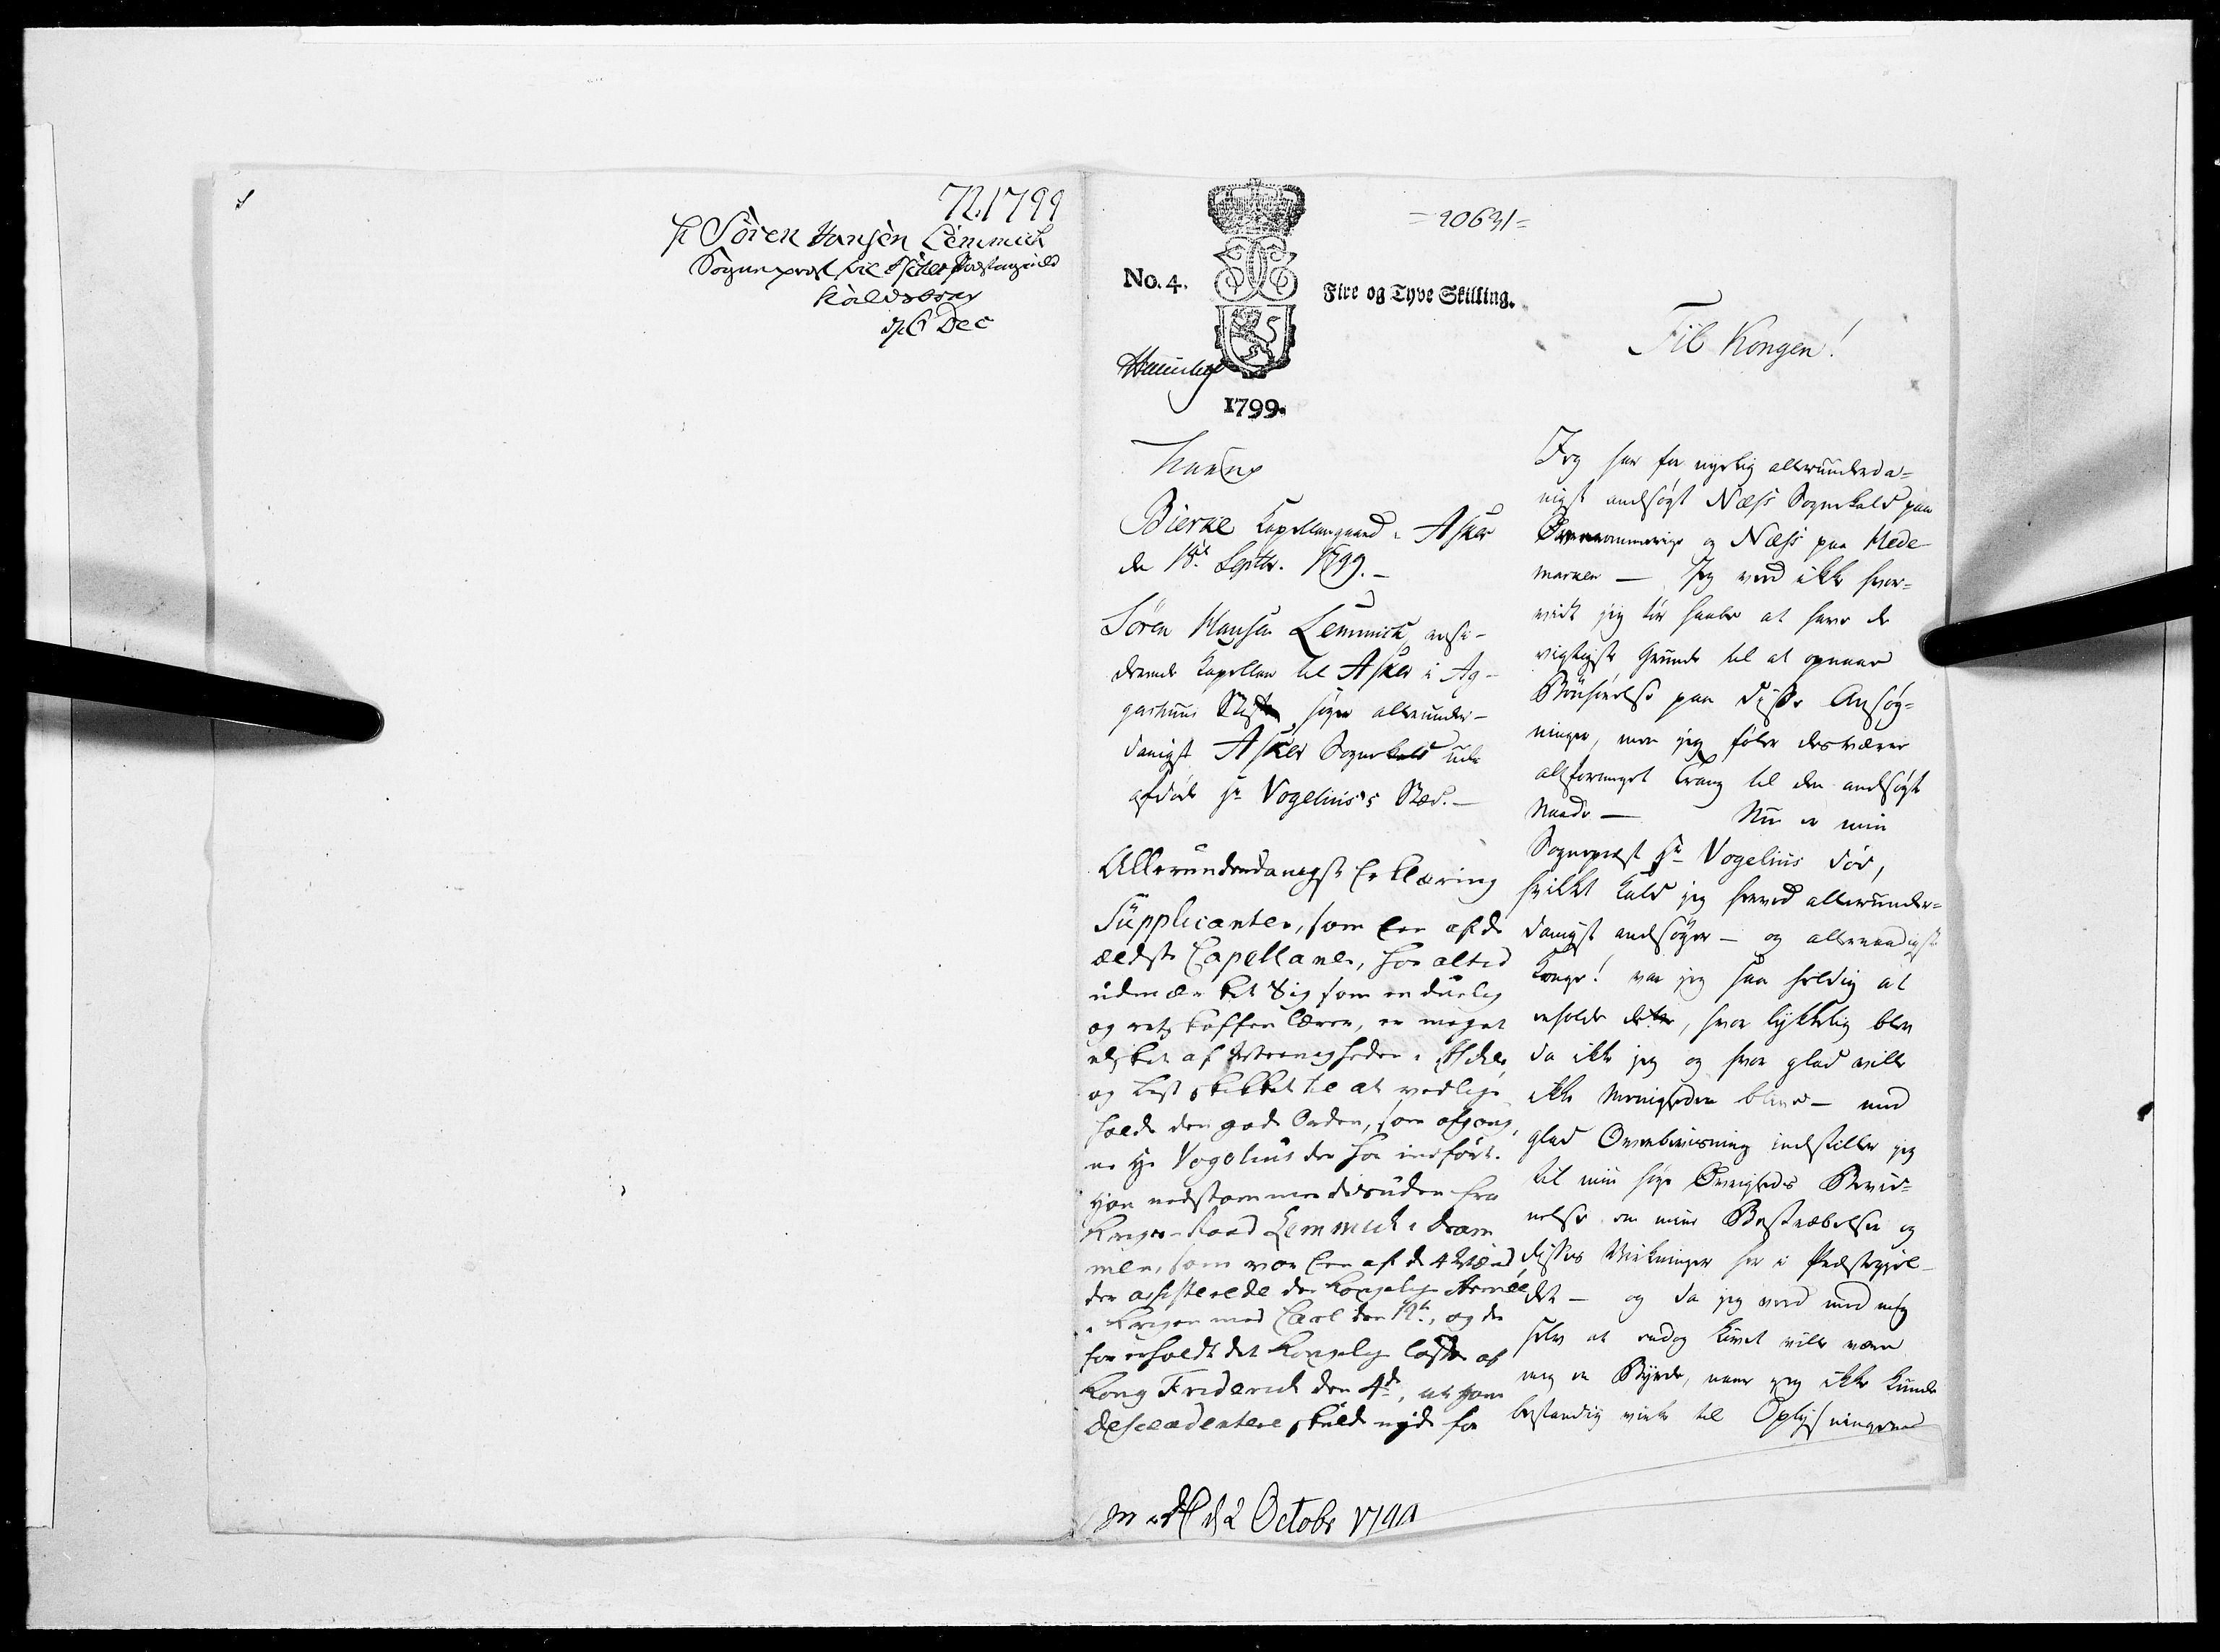 72. 1799
Hr Sören Hansen Lemmich
Sogneprest til Asker Præstegield
Kaldsbrev
d. 6 Dec
=20631=
No. 4.
Fire og Tyve Skilling.
1799.
Til Kongen!
Bierke Capellangaard i Asker
den 18de Septbr. 1799.-
Sören Hansen Lemmich, resi-
derende Capellan til Asker i Ag-
gershuus Stift, søger allerunder-
danigst Asker Sognekald udi
afdøde Hr Vogelius's Sted.-
Allerunderdanigst Erklæring
Supplicanten, som Een af de
ældste Capellaner, har altid
udmærket Sig som en duelig
og retskaffen Lærer, er meget
elsket af Menigheden i Asker,
og best skikket til at vedlige
holde den gode Orden, som afgang-
ne Hr Vogelius der har indført.
Han nedstammer desuden fra
Krigs-Raad Lemmich i Dram
men, som var Een af de 4 Mænd
der assisterede den Kongelige Armée
i Krigen med Carl den 12te, og der
for erholdt det Kongelige Løfte af
Kong Friderich den 4de, at hans
Descendentere skulde nyde for
Jeg har for nyelig allerundreda-
nigst ansøgt Næss Sognekald paa
Romerige og Næss paa Hede
marken — Jeg veed ikke hvor-
vidt jeg tør haabe at have de
vigtigste Grunde til at opnaae
Bønhørelse paa disse Ansøg-
ninger, men jeg føler desværre
altformeget Trang til den ansøgte
Naade — Nu er min
Sognepræst Hr Vogelius død,
hvilket Kald jeg herved allerunder-
danigst ansøger — og allernaadigste
Konge! var jeg saa heldig at
erholde dette, hvor lykkelig blev
da ikke jeg og hvor glad ville
ikke Menigheden blive — med
glad Overbeviisning indstiller jeg
til min høye Øvrigheds Bevid-
nelse om mine Bestræbelser og
disses Virkninger her i Præstegiel-
det — og da jeg veed med mig
selv at endog Livet ville være
mig en Byrde, naar jeg ikke kunde
bestandig virke til Oplysningens
d 2 Octobr 1799